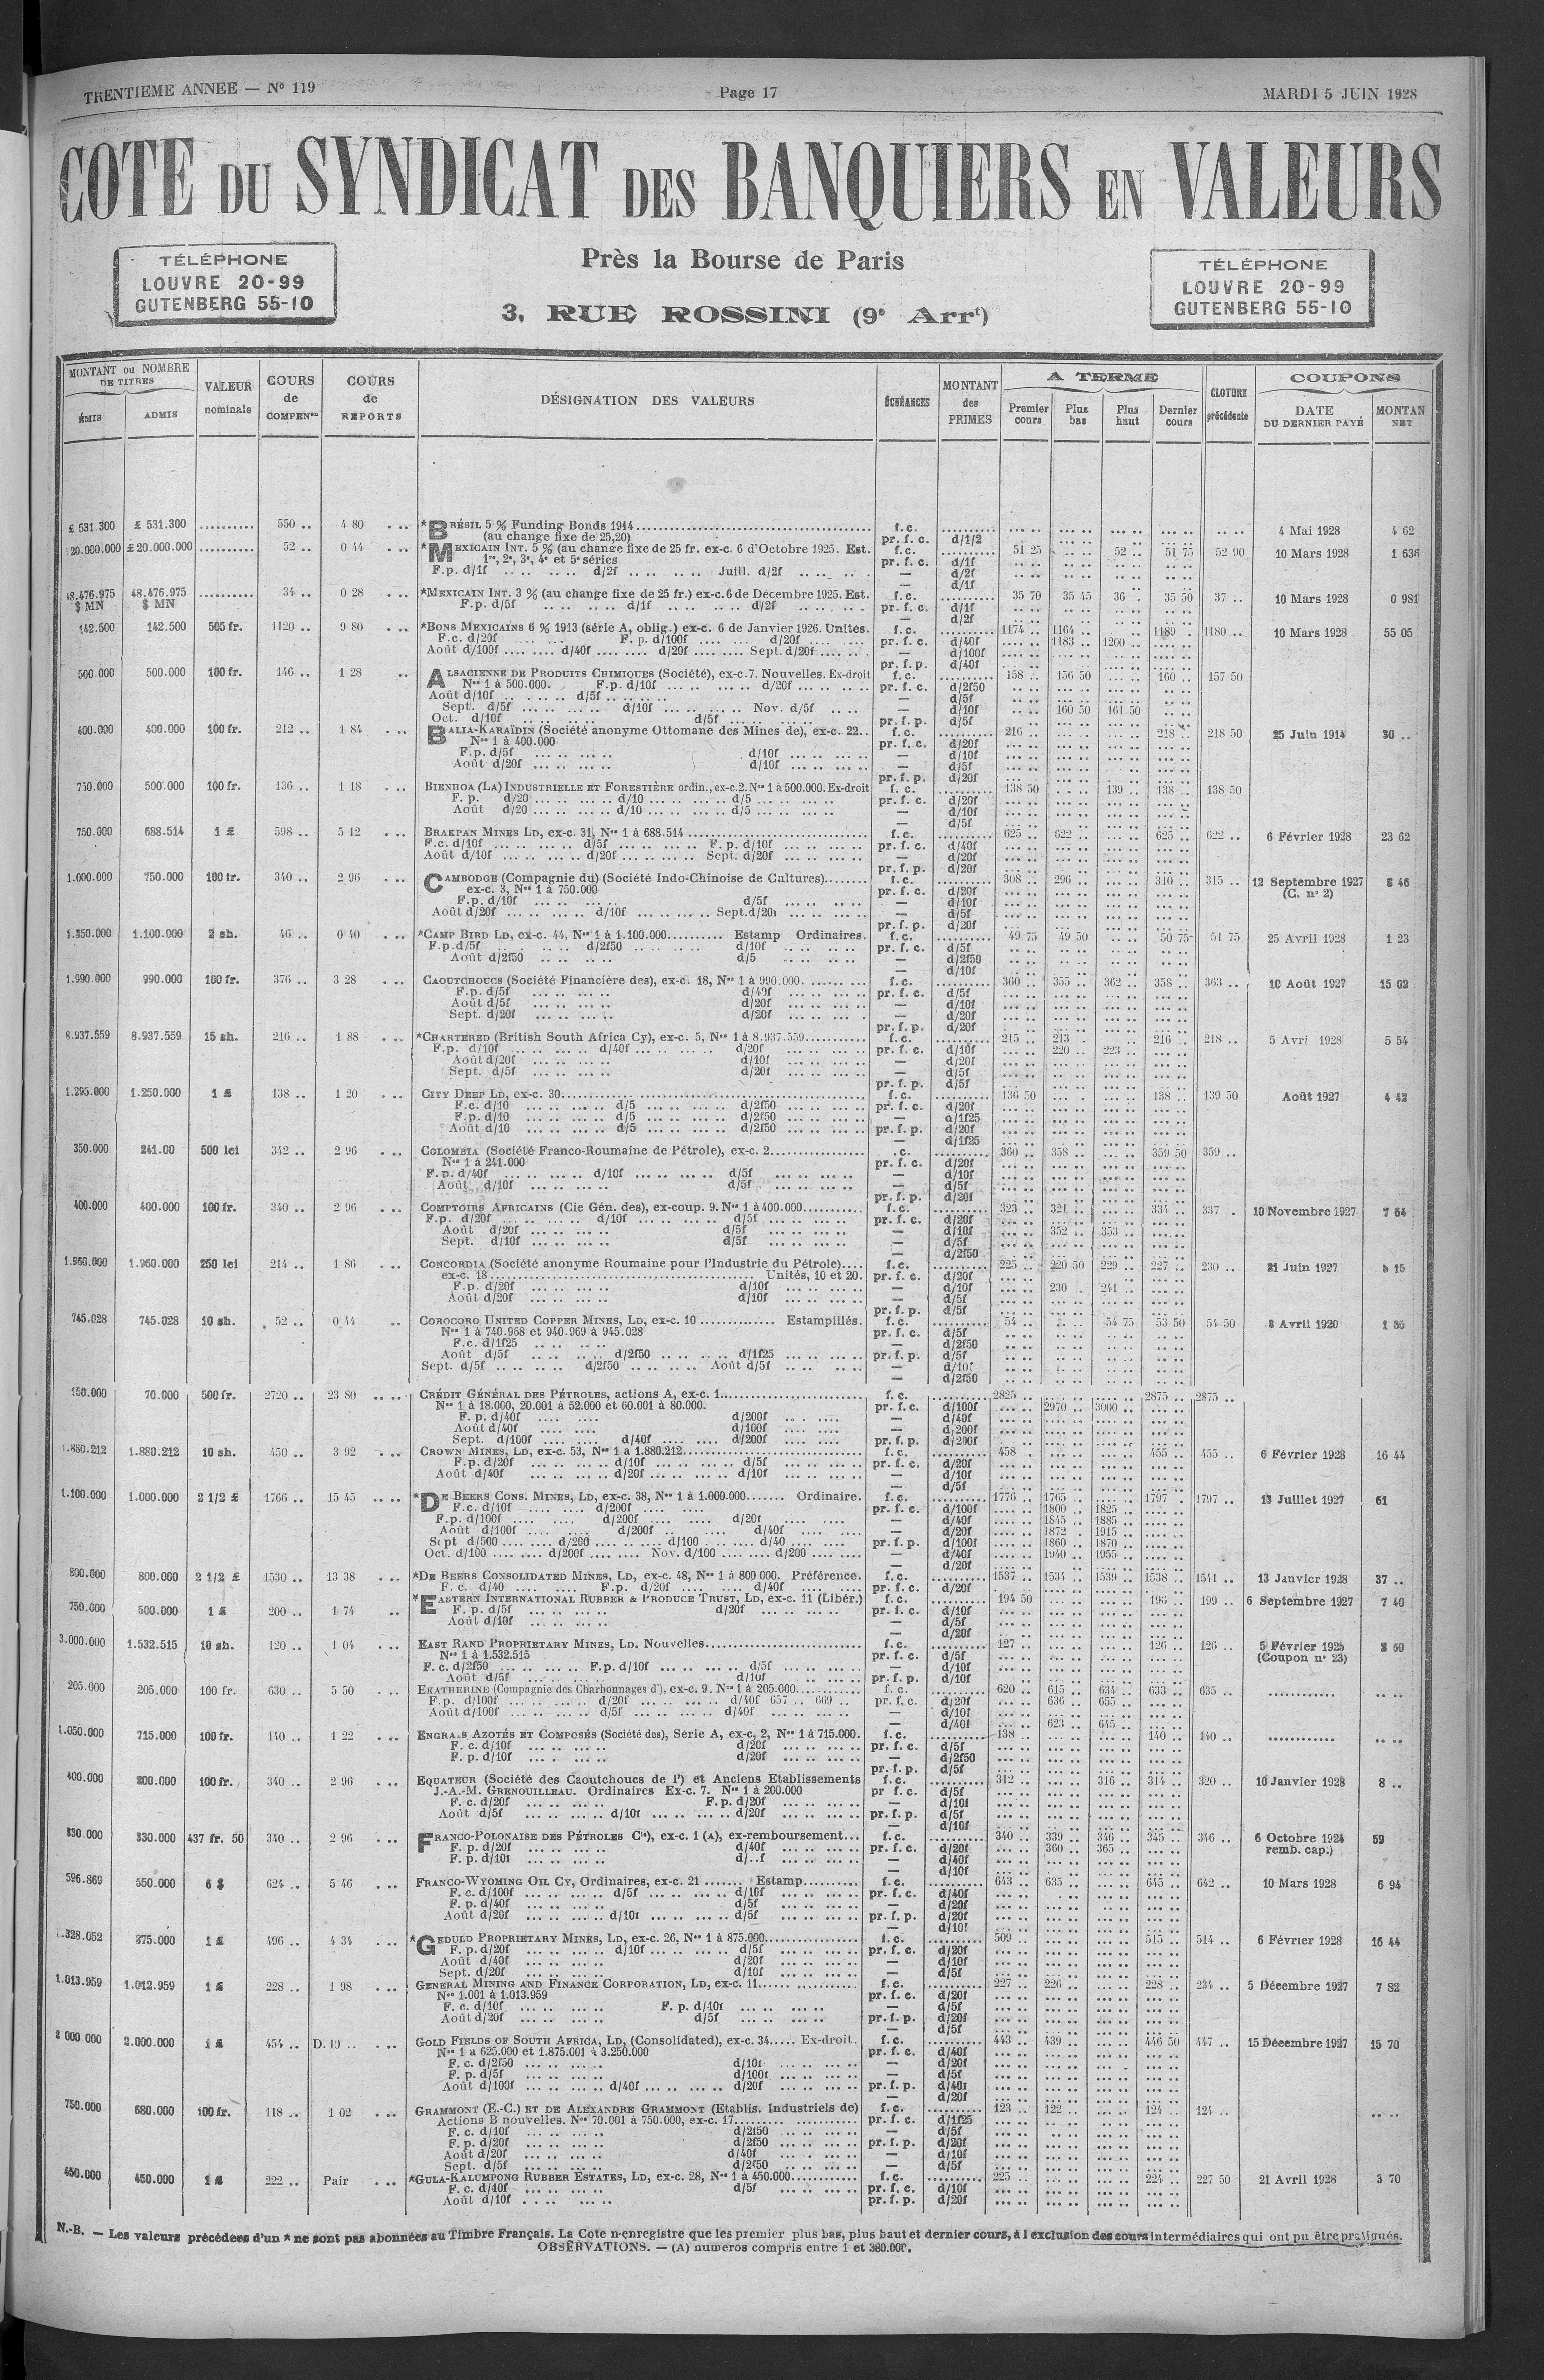 TRENTIEME ANNEE — Nº 119 Page 17 MARDI 5 JUIN 1928
COTE DU SYNDICAT DES BANQUIERS EN VALEURS
TÉLÉPHONE
LOUVRE 20-99
GUTENBERG 55-10
Près la Bourse de Paris
3, RUE ROSSINI (9e Arrt)
TÉLÉPHONE
LOUVRE 20-99
GUTENBERG 55-10
MONTANT ou NOMBRE DE TITRES
ÉMIS ADMIS
VALEUR nominale
COURS de COMPENon
COURS de REPORTS
DÉSIGNATION DES VALEURS
ÉCHÉANCES
MONTANT des PRIMES
A TERME
Premier cours Plus bas Plus haut Dernier cours
CLOTURE précédente
COUPONS
DATE DU DERNIER PAYÉ
MONTAN NET
£ 531.300 £ 531.300 .......... 550 .. 4 80 *BRÉSIL 5 % Funding Bonds 1914 f.c. 4 Mai 1928 4 62
(au change fixe de 25,20) pr. f. c. d/1/2
20.000.000 £ 20.000.000 .......... 52 .. 0 44 *MEXICAIN INT. 5 % (au change fixe de 25 fr. ex-c. 6 d'Octobre 1925. Est. f.c. 51 25 52 .. 51 75 52 90 10 Mars 1928 1 636
1re, 2e, 3e, 4e et 5e séries pr. f. c. d/1f
F.p. d/1f d/2f Juill. d/2f — d/2f
— d/1f
48.476.975 $ MN 48.476.975 $ MN .......... 34 .. 0 28 *MEXICAIN INT. 3 % (au change fixe de 25 fr.) ex-c. 6 de Décembre 1925. Est. f.c. 35 70 35 45 36 . 35 50 37 .. 10 Mars 1928 0 981
F.p. d/5f d/1f d/2f pr. f. c. d/1f
— d/2f
142.500 142.500 505 fr. 1120 .. 9 80 *BONS MEXICAINS 6 % 1913 (série A, oblig.) ex-c. 6 de Janvier 1926. Unités. f.c. 1174 .. 1164 .. 1189 . 1180 .. 10 Mars 1928 55 05
F.c. d/20f F. p. d/100f d/20f pr. f. c. d/40f 1183 .. 1200
Août d/100f d/40f d/20f Sept. d/20f — d/100f
pr. f. p. d/40f
500.000 500.000 100 fr. 146 .. 1 28 ALSACIENNE DE PRODUITS CHIMIQUES (Société), ex-c.7. Nouvelles. Ex-droit f.c. 158 .. 156 50 160 .. 157 50
Nos 1 à 500.000. F.p. d/10f d/20f pr. f. c. d/2f50
Août d/10f d/5f — d/5f
Sept. d/5f d/10f Nov. d/5f — d/10f 160 50 161 50
Oct. d/10f d/5f pr. f. p. d/5f
400.000 400.000 100 fr. 212 .. 1 84 BALIA-KARAÏDIN (Société anonyme Ottomane des Mines de), ex-c. 22.. f.c. 216 218 .. 218 50 25 Juin 1914 30 ..
Nos 1 à 400.000 pr. f. c. d/20f
F.p. d/5f d/10f — d/10f
Août d/20f d/10f — d/5f
pr. f. p. d/20f
750.000 500.000 100 fr. 136 .. 1 18 BIENHOA (LA) INDUSTRIELLE ET FORESTIÈRE ordin., ex-c.2. Nos 1 à 500.000. Ex-droit f. c. 138 50 139 .. 138 . 138 50
F. p. d/20 d/10 d/5 pr. f. c. d/20f
Août d/20 d/10 d/5 — d/10f
— d/5f
750.000 688.514 1 £ 598 .. 5 12 BRAKPAN MINES LD, ex-c. 31, Nos 1 à 688.514 f.c. 625 .. 622 .. 625 .. 622 .. 6 Février 1928 23 62
F.c. d/10f d/5f F. p. d/10f pr. f. c. d/40f
Août d/10f d/20f Sept. d/20f — d/20f
pr. f. p. d/20f
1.000.000 750.000 100 fr. 340 .. 2 96 CAMBODGE (Compagnie du) (Société Indo-Chinoise de Cultures) f.c. 308 .. 296 .. 310 .. 315 .. 12 Septembre 1927 46
ex-c. 3, Nos 1 à 750.000 pr. f. c. d/20f (C. nº 2)
F.p. d/10f d/5f — d/10f
Août d/20f d/10f Sept. — d/5f
pr. f. p. d/20f
1.350.000 1.100.000 2 sh. 46 .. 0 40 *CAMP BIRD LD, ex-c. 44, Nos 1 à 1.100.000 Estamp Ordinaires. f.c. 49 75 49 50 50 75 51 75 25 Avril 1928 1 23
F.p.d/5f d/2f50 d/10f pr. f. c. d/5f
Août d/2f50 d/5 — d/2f50
— d/10f
1.990.000 990.000 100 fr. 376 .. 3 28 CAOUTCHOUCS (Société Financière des), ex-c. 18, Nos 1 à 990.000. f.c. 360 .. 355 .. 362 .. 358 .. 363 .. 10 Août 1927 15 02
F.p. d/5f d/40f pr. f. c. d/5f
Août d/5f d/20f — d/10f
Sept. d/20f d/20f — d/20f
pr. f. p. d/20f
8.937.559 8.937.559 15 sh. 216 .. 1 88 *CHARTERED (British South Africa Cy), ex-c. 5, Nos 1 à 8.937.559 f.c. 215 .. 213 . 216 .. 218 .. 5 Avri 1928 5 54
F.p. d/10f d/40f d/20f pr. f. c. d/10f 220 .. 223 ..
Août d/20f d/10f — d/20f
Sept. d/5f d/20f — d/5f
pr. f. p. d/5f
1.295.000 1.250.000 1 £ 138 .. 1 20 CITY DEEP LD, ex-c. 30 f.c. 136 50 138 .. 139 50 Août 1927 4 42
F.c. d/10 d/5 d/2f50 pr. f. c. d/20f
F.p. d/10 d/5 d/2f50 — d/1f25
Août d/10 d/5 d/2f50 pr. f. p. d/20f
— d/1f25
350.000 241.00 500 lei 342 .. 2 96 COLOMBIA (Société Franco-Roumaine de Pétrole), ex-c. 2 .c. 360 .. 358 .. 359 50 359 ..
Nos 1 à 241.000 pr. f. c. d/20f
F.p. d/40f d/10f d/5f — d/10f
Août d/10f d/5f — d/5f
pr. f. p. d/20f
400.000 400.000 100 fr. 340 .. 2 96 COMPTOIRS AFRICAINS (Cie Gén. des), ex-coup. 9. Nos 1 à 400.000 f.c. 323 .. 321 .. 334 .. 337 . 10 Novembre 1927 7 64
F.p. d/20f d/10f d/5f pr. f. c. d/20f
Août d/20f d/5f — d/10f 352 .. 353 ..
Sept. d/10f d/5f — d/5f
— d/2f50
1.960.000 1.960.000 250 lei 214 .. 1 86 CONCORDIA (Société anonyme Roumaine pour l'Industrie du Pétrole).... f.c. 225 .. 220 50 229 .. 227 .. 230 .. 21 Juin 1927 15
ex-c. 18 Unités, 10 et 20. pr. f. c. d/20f
F.p. d/20f d/10f — d/10f 230 . 241 ..
Août d/20f d/10f — d/5f
pr. f. p. d/5f
745.028 745.028 10 sh. 52 .. 0 44 COROCORO UNITED COPPER MINES, LD, ex-c. 10 Estampillés. f.c. 54 .. 54 75 53 50 54 50 8 Avril 1920 1 85
Nos 1 à 740.968 et 940.969 à 945.028 pr. f. c. d/5f
F.c. d/1f25 — d/2f50
Août d/5f d/2f50 d/1f25 pr. f. p. d/5f
Sept. d/5f d/2f50 Août d/5f — d/10f
— d/2f50
150.000 70.000 500 fr. 2720 .. 23 80 CRÉDIT GÉNÉRAL DES PÉTROLES, actions A, ex-c. 1 f. c. 2825 .. 2875 .. 2875 ..
Nos 1 à 18.000, 20.001 à 52.000 et 60.001 à 80.000. pr. f. c. d/100f 2970 .. 3000 ..
F. p. d/40f d/200f — d/40f
Août d/40f d/100f — d/200f
Sept. d/100f d/40f d/200f pr. f. p. d/200f
1.880.212 1.880.212 10 sh. 450 .. 3 92 CROWN MINES, LD, ex-c. 53, Nos 1 a 1.880.212 f.c. 458 . 455 .. 455 .. 6 Février 1928 16 44
F.p. d/20f d/10f d/5f pr. f. c. d/20f
Août d/40f d/20f d/10f — d/10f
— d/5f
1.100.000 1.000.000 2 1/2 £ 1766 .. 15 45 *DE BEERS CONS. MINES, LD, ex-c. 38, Nos 1 à 1.000.000 Ordinaire. f.c. 1776 .. 1765 .. 1797 . 1797 .. 13 Juillet 1927 61
F.c. d/10f d/200f pr. f. c. d/100f 1800 .. 1825 ..
F.p. d/100f d/200f d/20f — d/40f 1845 .. 1885 ..
Août d/100f d/200f d/40f — d/20f 1872 . 1915 ..
Sept d/500 d/200 d/100 d/40 pr. f. p. d/100f 1860 .. 1870 ..
Oct. d/100 d/200f Nov. d/100 d/200 — d/40f 1940 .. 1955 ..
— d/20f
800.000 800.000 2 1/2 £ 1530 .. 13 38 *DE BEERS CONSOLIDATED MINES, LD, ex-c. 48, Nos 1 à 800 000. Préférence. f.c. 1537 .. 1534 .. 1539 .. 1538 .. 1541 .. 13 Janvier 1928 37 ..
F. c. d/40 F.p. d/20f d/40f pr. f. c. d/20f
750.000 500.000 1 £ 200 .. 1 74 *EASTERN INTERNATIONAL RUBBER & PRODUCE TRUST, LD, ex-c. 11 (Libér.) f.c. 194 50 196 .. 199 .. 6 Septembre 1927 7 40
F. p. d/5f d/20f pr. f. c. d/10f
Août d/10f — d/5f
— d/20f
3.000.000 1.532.515 10 sh. 120 .. 1 04 EAST RAND PROPRIETARY MINES, LD, Nouvelles f.c. 127 .. 126 .. 126 .. 5 Février 1925 50
Nos 1 à 1.532.515 pr. f. c. d/5f (Coupon nº 23)
F. c. d/2f50 F.p. d/10f d/5f — d/10f
Août d/5f d/10f pr. f. p. d/10f
205.000 205.000 100 fr. 630 .. 5 50 EKATHERINE (Compagnie des Charbonnages d'), ex-c. 9. Nos 1 à 205.000. f.c. 620 .. 615 .. 634 .. 633 .. 635 ..
F.p. d/100f d/20f d/40f 657 .. 669 .. pr. f. c. d/20f 636 .. 655 ..
Août d/100f d/5f d/40f — d/10f
— d/40f 623 .. 645 ..
1.050.000 715.000 100 fr. 140 .. 1 22 ENGRAIS AZOTÉS ET COMPOSÉS (Société des), Serie A, ex-c, 2, Nos 1 à 715.000. f.c. 138 140 .. 140 ..
F. c. d/10f d/20f pr. f. c. d/5f
F. p. d/10f d/20f — d/2f50
pr. f. p. d/5f
400.000 200.000 100 fr. 340 .. 2 96 EQUATEUR (Société des Caoutchoucs de l') et Anciens Etablissements f.c. 312 .. 316 .. 314 .. 320 .. 10 Janvier 1928 8 ..
J.-A.-M. GRENOUILLEAU. Ordinaires Ex-c. 7. Nos 1 à 200.000 pr f. c. d/5f
F. c. d/20f F.p. d/20f — d/10f
Août d/5f d/10f d/20f pr. f. p. d/5f
— d/10f
330.000 330.000 437 fr. 50 340 .. 2 96 FRANCO-POLONAISE DES PÉTROLES Cie), ex-c. 1 (A), ex-remboursement... f.c. 340 .. 339 .. 346 .. 345 .. 346 .. 6 Octobre 1924 59
F. p. d/20f d/40f pr. f. c. d/20f 360 .. 365 .. remb. cap.)
F. p. d/10f d/..f — d/40f
— d/10f
596.869 550.000 6 $ 624 .. 5 46 FRANCO-WYOMING OIL CY, Ordinaires, ex-c. 21 Estamp f.c. 643 .. 635 .. 645 .. 642 .. 10 Mars 1928 6 94
F. c. d/100f d/5f d/10f pr. f. c. d/40f
F. p. d/40f d/5f — d/20f
Août d/20f d/10f d/5f pr. f. p. d/20f
— d/10f
1.328.052 875.000 1 £ 496 .. 4 34 *GEDULD PROPRIETARY MINES, LD, ex-c. 26, Nos 1 à 875.000 f.c. 509 515 .. 514 .. 6 Février 1928 16 44
F. p. d/20f d/10f d/5f pr. f. c. d/20f
Août d/40f d/20f — d/10f
Sept. d/20f d/10f — d/5f
1.013.959 1.012.959 1 £ 228 .. 1 98 GENERAL MINING AND FINANCE CORPORATION, LD, ex-c. 11 f.c. 227 .. 226 .. 228 .. 234 .. 5 Décembre 1927 7 82
Nos 1.001 à 1.013.959 pr. f. c. d/20f
F. c. d/10f F. p. d/10f — d/5f
Août d/20f d/5f pr. f. p. d/20f
— d/5f
2 000 000 2.000.000 1 £ 454 .. D. 10 .. GOLD FIELDS OF SOUTH AFRICA, LD, (Consolidated), ex-c. 34..... Ex-droit. f.c. 443 .. 439 .. 446 50 447 .. 15 Décembre 1927 15 70
Nos 1 a 625.000 et 1.875.001 à 3.250.000 pr. f. c. d/40f
F. c. d/2f50 d/10f — d/20f
F. p. d/5f d/100f — d/5f
Août d/100f d/40f d/20f pr. f. p. d/40f
— d/20f
750.000 680.000 100 fr. 118 .. 1 02 GRAMMONT (E.-C.) ET DE ALEXANDRE GRAMMONT (Etablis. Industriels de) f.c. 123 .. 122 .. 124 .. 124 ..
Actions B nouvelles. Nos 70.001 à 750.000, ex-c. 17 pr. f. c. d/1f25
F. c. d/10f d/2f50 — d/5f
F. p. d/20f d/2f50 pr. f. p. d/20f
Août d/20f d/40f — d/10f
Sept. d/5f d/2f50 — d/5f
450.000 450.000 1 £ 222 .. Pair *GULA-KALUMPONG RUBBER ESTATES, LD, ex-c. 28, Nos 1 à 450.000 f.c. 225 .. 224 .. 227 50 21 Avril 1928 3 70
F. c. d/40f d/5f pr. f. c. d/10f
Août d/10f pr. f. p. d/20f
N.-B. — Les valeurs précédées d'un * ne sont pas abonnées au Timbre Français. La Cote n'enregistre que les premier plus bas, plus haut et dernier cours, à l exclusion des cours intermédiaires qui ont pu être pratiqués.
OBSERVATIONS. — (A) numeros compris entre 1 et 380.000.